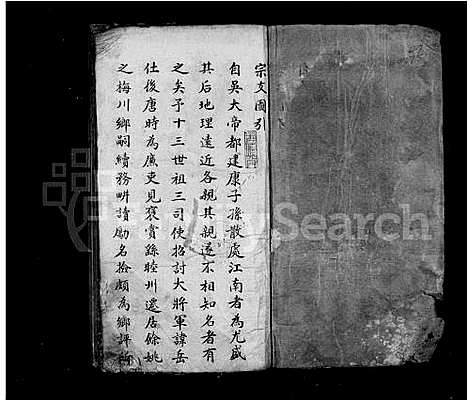 宗支圖引
自吳大帝都建康子孫散處江南者為尤盛
其后地理遠近各親其親遂不相知名者有
之矣予十三世祖三司使招討大將軍諱岳
仕後唐時為廉吏見褒賞繇睦州遷居餘姚
之梅川鄉嗣續務畊讀勵名檢頗為鄉評所
FamilySearch